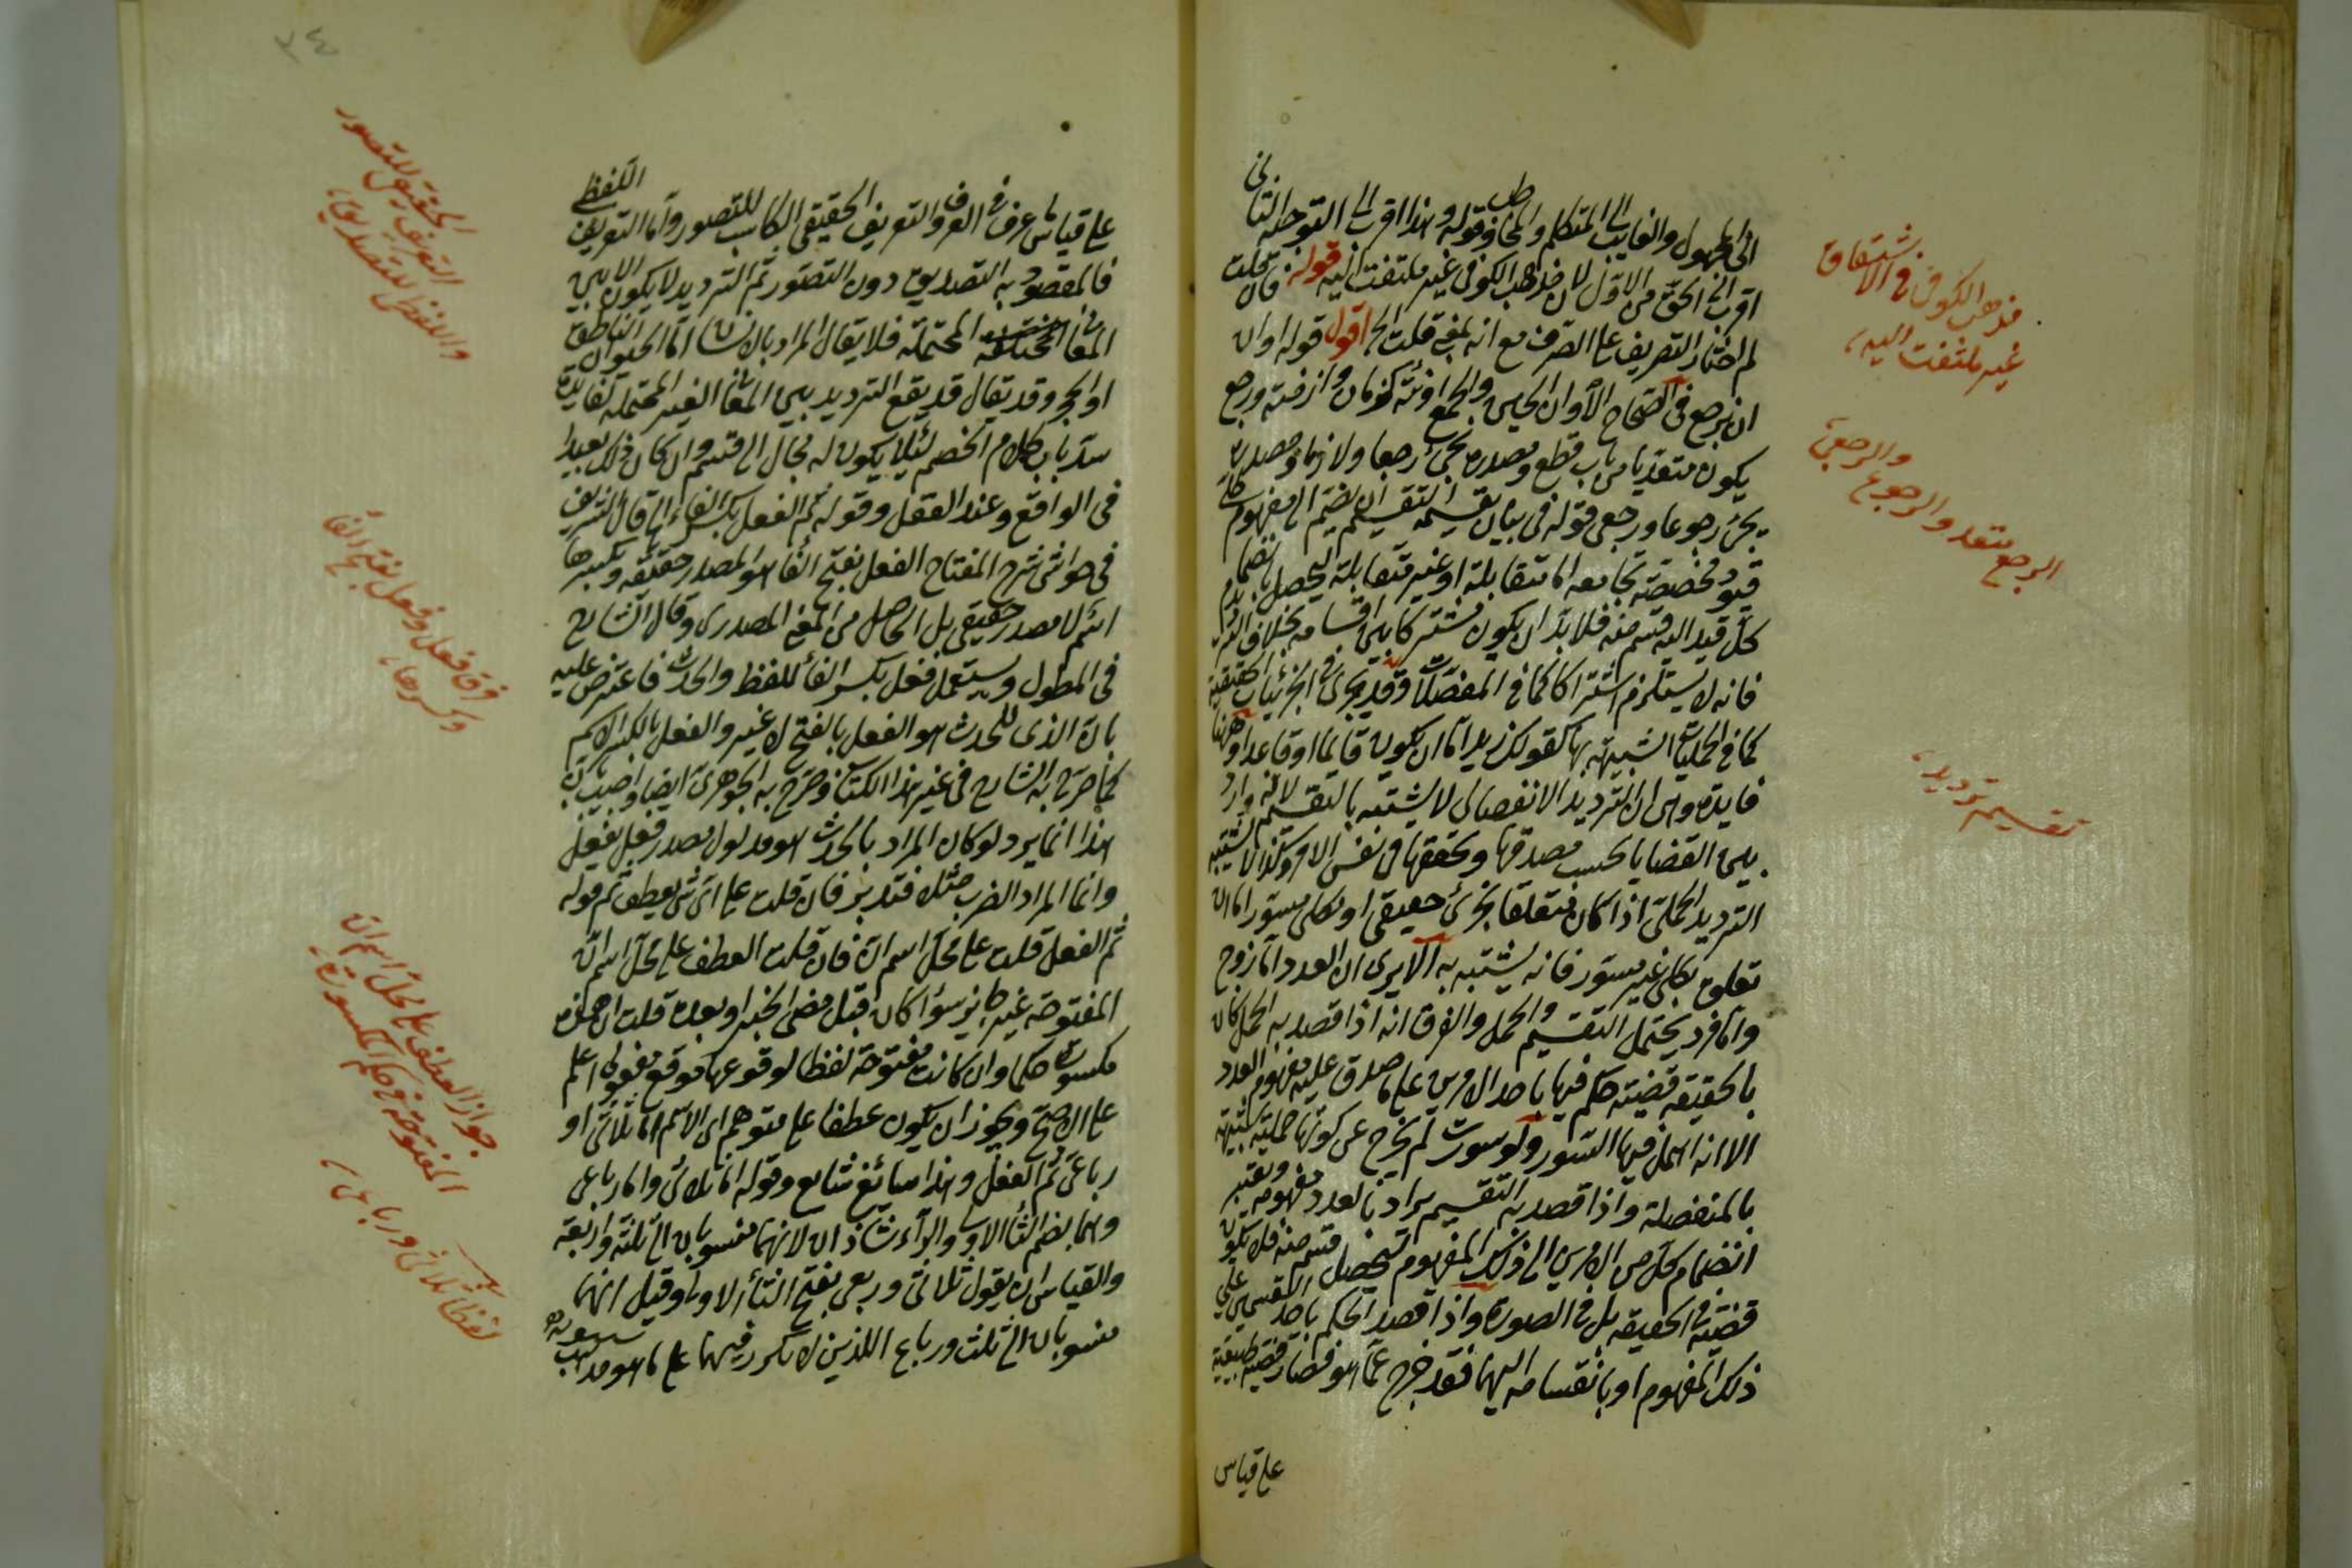 الى المجهول والغايب الى المتكلم والمخاطب وقوله وهذا اقرب الى التوجيه الثانى
اقرب الى الحق من الاول لان مذهب الكوفى غير ملتفت اليه قوله فان قلت
لم اختار التصريف على الصرف مع انه بمعنى قلت الخ اقول قوله اوان
ان يرجع فى الصحاح الأوان الحين والجمع اونة كزمان وازمنة ورجع
يكون متعديا من باب قطع ومصدره يجئ رجعا ولازما ومصدره
يجئ رجوعا ورجعى قوله فى بيان تقسيمه التقسيم ان يضم الى مفهوم كلى
قيود مخصصة تجامعه اما متقابلة او غير متقابلة ليحصل بانضمام
كل قيد اليه قسم منه فلا بد ان يكون مشتركا بين اقسامه بخلاف الترديد
فانه لا يستلزم اشتراكا كما فى المنفصلات وقد يجرى فى الجزئيات الحقيقية
كما فى الحمليات الشبيهة بها كقولك زيد اما ان يكون قايما او قاعدا وههنا
فايدة وهى ان الترديد الانفصالى لا يشتبه بالتقسيم لانه وارد
بين القضايا بحسب صدقها وتحققها فى نفس الامر وكذا لا يشتبه
الترديد الحملى اذا كان متعلقا بجزئى حقيقى او بكلى مسور اما ان
تعلق بكلى غير مسور فانه يشتبه به الا يرى ان العدد اما زوج
واما فرد يحتمل التقسيم والحمل والفرق انه اذا قصد به الحمل كان
بالحقيقة قضية حكم فيها باحد الامرين على ما صدق عليه مفهوم العدد
الا انه اهمل فيها السور ولو سورت لم يخرج عن كونها حملية شبيهة
بالمنفصلة واذا قصد به التقسيم يراد بالعدد مفهومه ويعتبر
انضمام كل من الامرين الى ذلك المفهوم ليحصل قسم منه فلا يكون
قضية فى الحقيقة بل فى الصورة واذا قصد الحكم باحد القسمين على
ذلك المفهوم او بانقسامه اليهما فقد خرج عما هو فصار قضية طبيعية
على قياس
مذهب الكوفى فى الاشتقاق
غير ملتفت اليه
الرجع متعد والرجوع
والرجعى
تقسيم ترديد
٣٤
على قياس عرف فى العرف والتعريف الحقيقى الكاسب للتصور واما التعريف اللفظى
فالمقصود به التصديق دون التصور ثم الترديد لا يكون الا بين
المعانى المحتملة فلا يقال المراد بالانسان اما الحيوان الناطق
او الحجر وقد يقال قد يقع الترديد بين المعانى الغير المحتملة لفايدة
سد باب كلام الخصم لئلا يكون له مجال الى قسم وان كان ذلك بعيدا
فى الواقع وعند العقل وقوله ثم الفعل بكسر الفاء الخ قال الشريف
فى حواشى شرح المفتاح الفعل بفتح الفا هو المصدر حقيقة وبكسرها
اسم لا مصدر حقيقى بل الحاصل من المعنى المصدرى وقال الشارح
فى المطول ويستعمل فعل بكسر الفأ للفظ والحدث فاعترض عليه
بان الذى للحدث هو الفعل بالفتح لا غير والفعل بالكسر الاسم
كما صرح به الشارح فى غير هذا الكتاب وصرح به الجوهرى ايضا واجيب بان
هذا انما يرد لو كان المراد بالحدث هو مدلول مصدر فعل يفعل
وانما المراد الضرب مثلا فتدبر فان قلت على اى شئ يعطف ثم قوله
ثم الفعل قلت على محل اسم ان فان قلت العطف على محل اسم ان
المفتوحة غير جايز سوأ كان قبل مضى الخبر او بعده قلت ان همزة
مكسورة حكما وان كانت مفتوحة لفظا لوقوعها موقع مفعولى اعلم
على الاصح ويجوز ان يكون عطفا على متوهم اى الاسم اما ثلاثى او
رباعى ثم الفعل وهذا سائغ شايع وقوله اما ثلاثى واما رباعى
وهما بضم الثأ الاولى والرآء شاذان لانهما منسوبان الى ثلثة واربعة
والقياس ان يقول ثلاثى وربعى بفتح الثأ الاولى وقيل انهما
منسوبان الى ثلث ورباع اللذين لا تكرر فيهما على ما هو مذهب سيبويه
الحقيقى للتصور
التعريف
واللفظى للتصديق
فرق فعل وفعل بفتح الفا
وكسرها
جواز العطف على محل اسم ان
المفتوحة فى حكم المكسورة
لفظ ثلاثى ورباعى